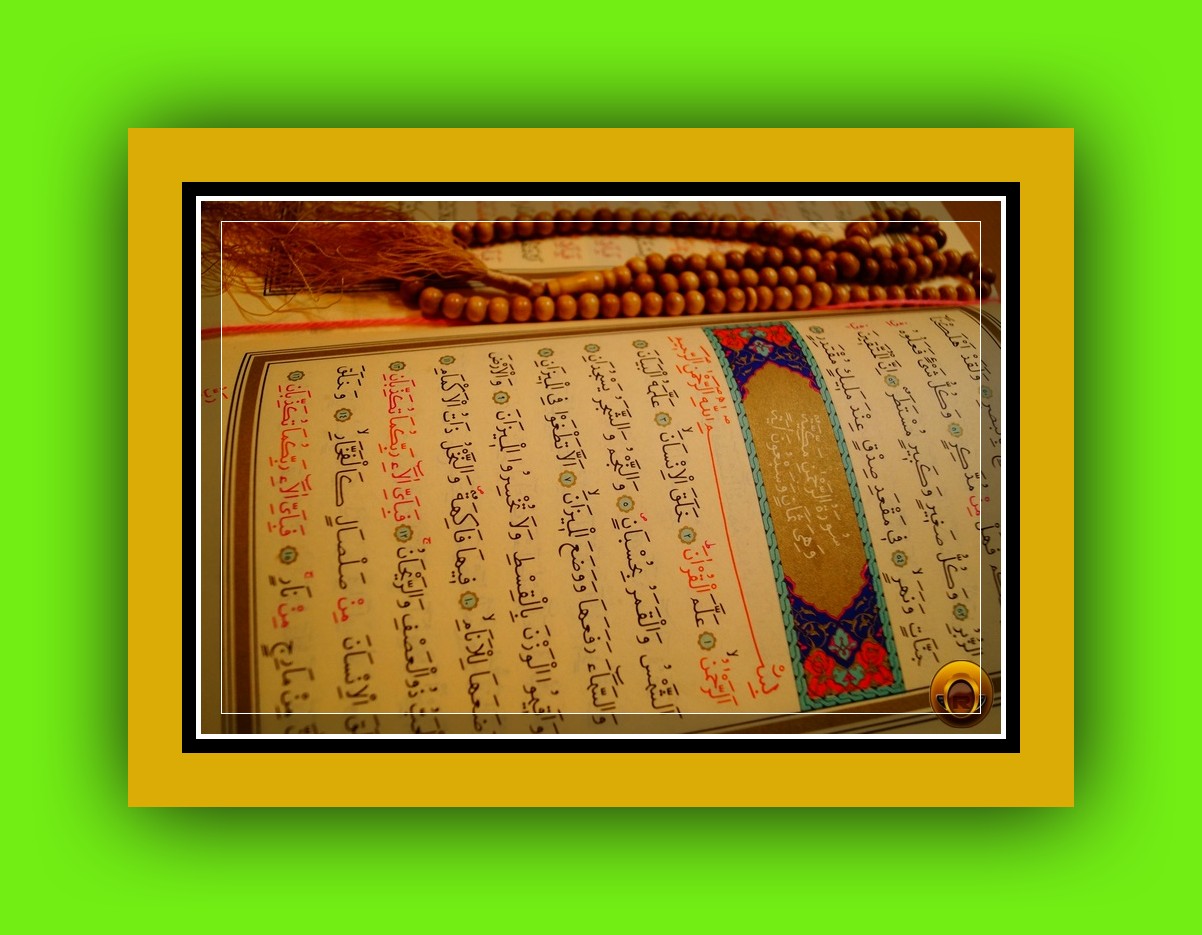 وَلَقَدْ
وَكُلُّ شَىْءٍ فَعَلُوهُ
مُدَّكِرٍ ﴿٥١﴾ وَكُلُّ صَغِيرٍ وَكَبِيرٍ مُسْتَطَرٌ ﴿٥٣﴾ اِنَّ الْمُتَّقِينَ
الزُّبُرِ ﴿٥٢﴾ وَكُلُّ
جَنَّاتٍ وَنَهَرٍ ﴿٥٤﴾ فِى مَقْعَدِ صِدْقٍ عِنْدَ مَلِيكٍ مُقْتَدِرٍ
سُورَةُ الرَّحْمٰنِ مَكِّيَّةٌ
وَهِىَ ثَمَانٌ وَسَبْعُونَ اٰيَةً
بِسْمِ اللّٰهِ الرَّحْمٰنِ الرَّحِيمِ
اَلرَّحْمٰنُ ﴿١﴾ عَلَّمَ الْقُرْاٰنَ ﴿٢﴾ خَلَقَ الْاِنْسَانَ ﴿٣﴾ عَلَّمَهُ الْبَيَانَ ﴿٤﴾
اَلشَّمْسُ وَالْقَمَرُ بِحُسْبَانٍ ﴿٥﴾ وَالنَّجْمُ وَالشَّجَرُ يَسْجُدَانِ ﴿٦﴾
وَالسَّمَاءَ رَفَعَهَا وَوَضَعَ الْمِيزَانَ ﴿٧﴾ اَلَّا تَطْغَوْا فِى الْمِيزَانِ ﴿٨﴾
وَاَقِيمُوا الْوَزْنَ بِالْقِسْطِ وَلَا تُخْسِرُوا الْمِيزَانَ ﴿٩﴾ وَالْاَرْضَ
وَضَعَهَا لِلْاَنَامِ ﴿١٠﴾ فِيهَا فَاكِهَةٌ وَالنَّخْلُ ذَاتُ الْاَكْمَامِ ﴿١١﴾
وَالْحَبُّ ذُو الْعَصْفِ وَالرَّيْحَانُ ﴿١٢﴾ فَبِاَىِّ اٰلَاءِ رَبِّكُمَا تُكَذِّبَانِ ﴿١٣﴾
خَلَقَ الْاِنْسَانَ مِنْ صَلْصَالٍ كَالْفَخَّارِ ﴿١٤﴾ وَخَلَقَ
مِنْ مَارِجٍ مِنْ نَارٍ ﴿١٥﴾ فَبِاَىِّ اٰلَاءِ رَبِّكُمَا تُكَذِّبَانِ ﴿١٦﴾